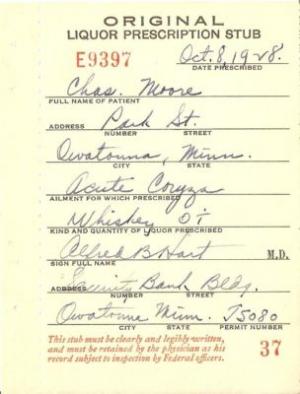 ORIGINAL
LIQUOR PRESCRIPTION STUB
E9397 Oct. 8, 1928.
DATE PRESCRIBED
Chas. Moore
FULL NAME OF PATIENT
ADDRESS Park St.
NUMBER STREET
Owatonna, Minn.
CITY STATE
Acute Coryza
AILMENT FOR WHICH PRESCRIBED
Whiskey O
KIND AND QUANTITY OF LIQUOR PRESCRIBED
Alfred B Hart M.D.
SIGN FULL NAME
ADDRESS Security Bank Bldg.
NUMBER STREET
Owatonna Minn. 75080
CITY STATE PERMIT NUMBER
This stub must be clearly and legibly written,
and must be retained by the physician as his
record subject to inspection by Federal officers.
37